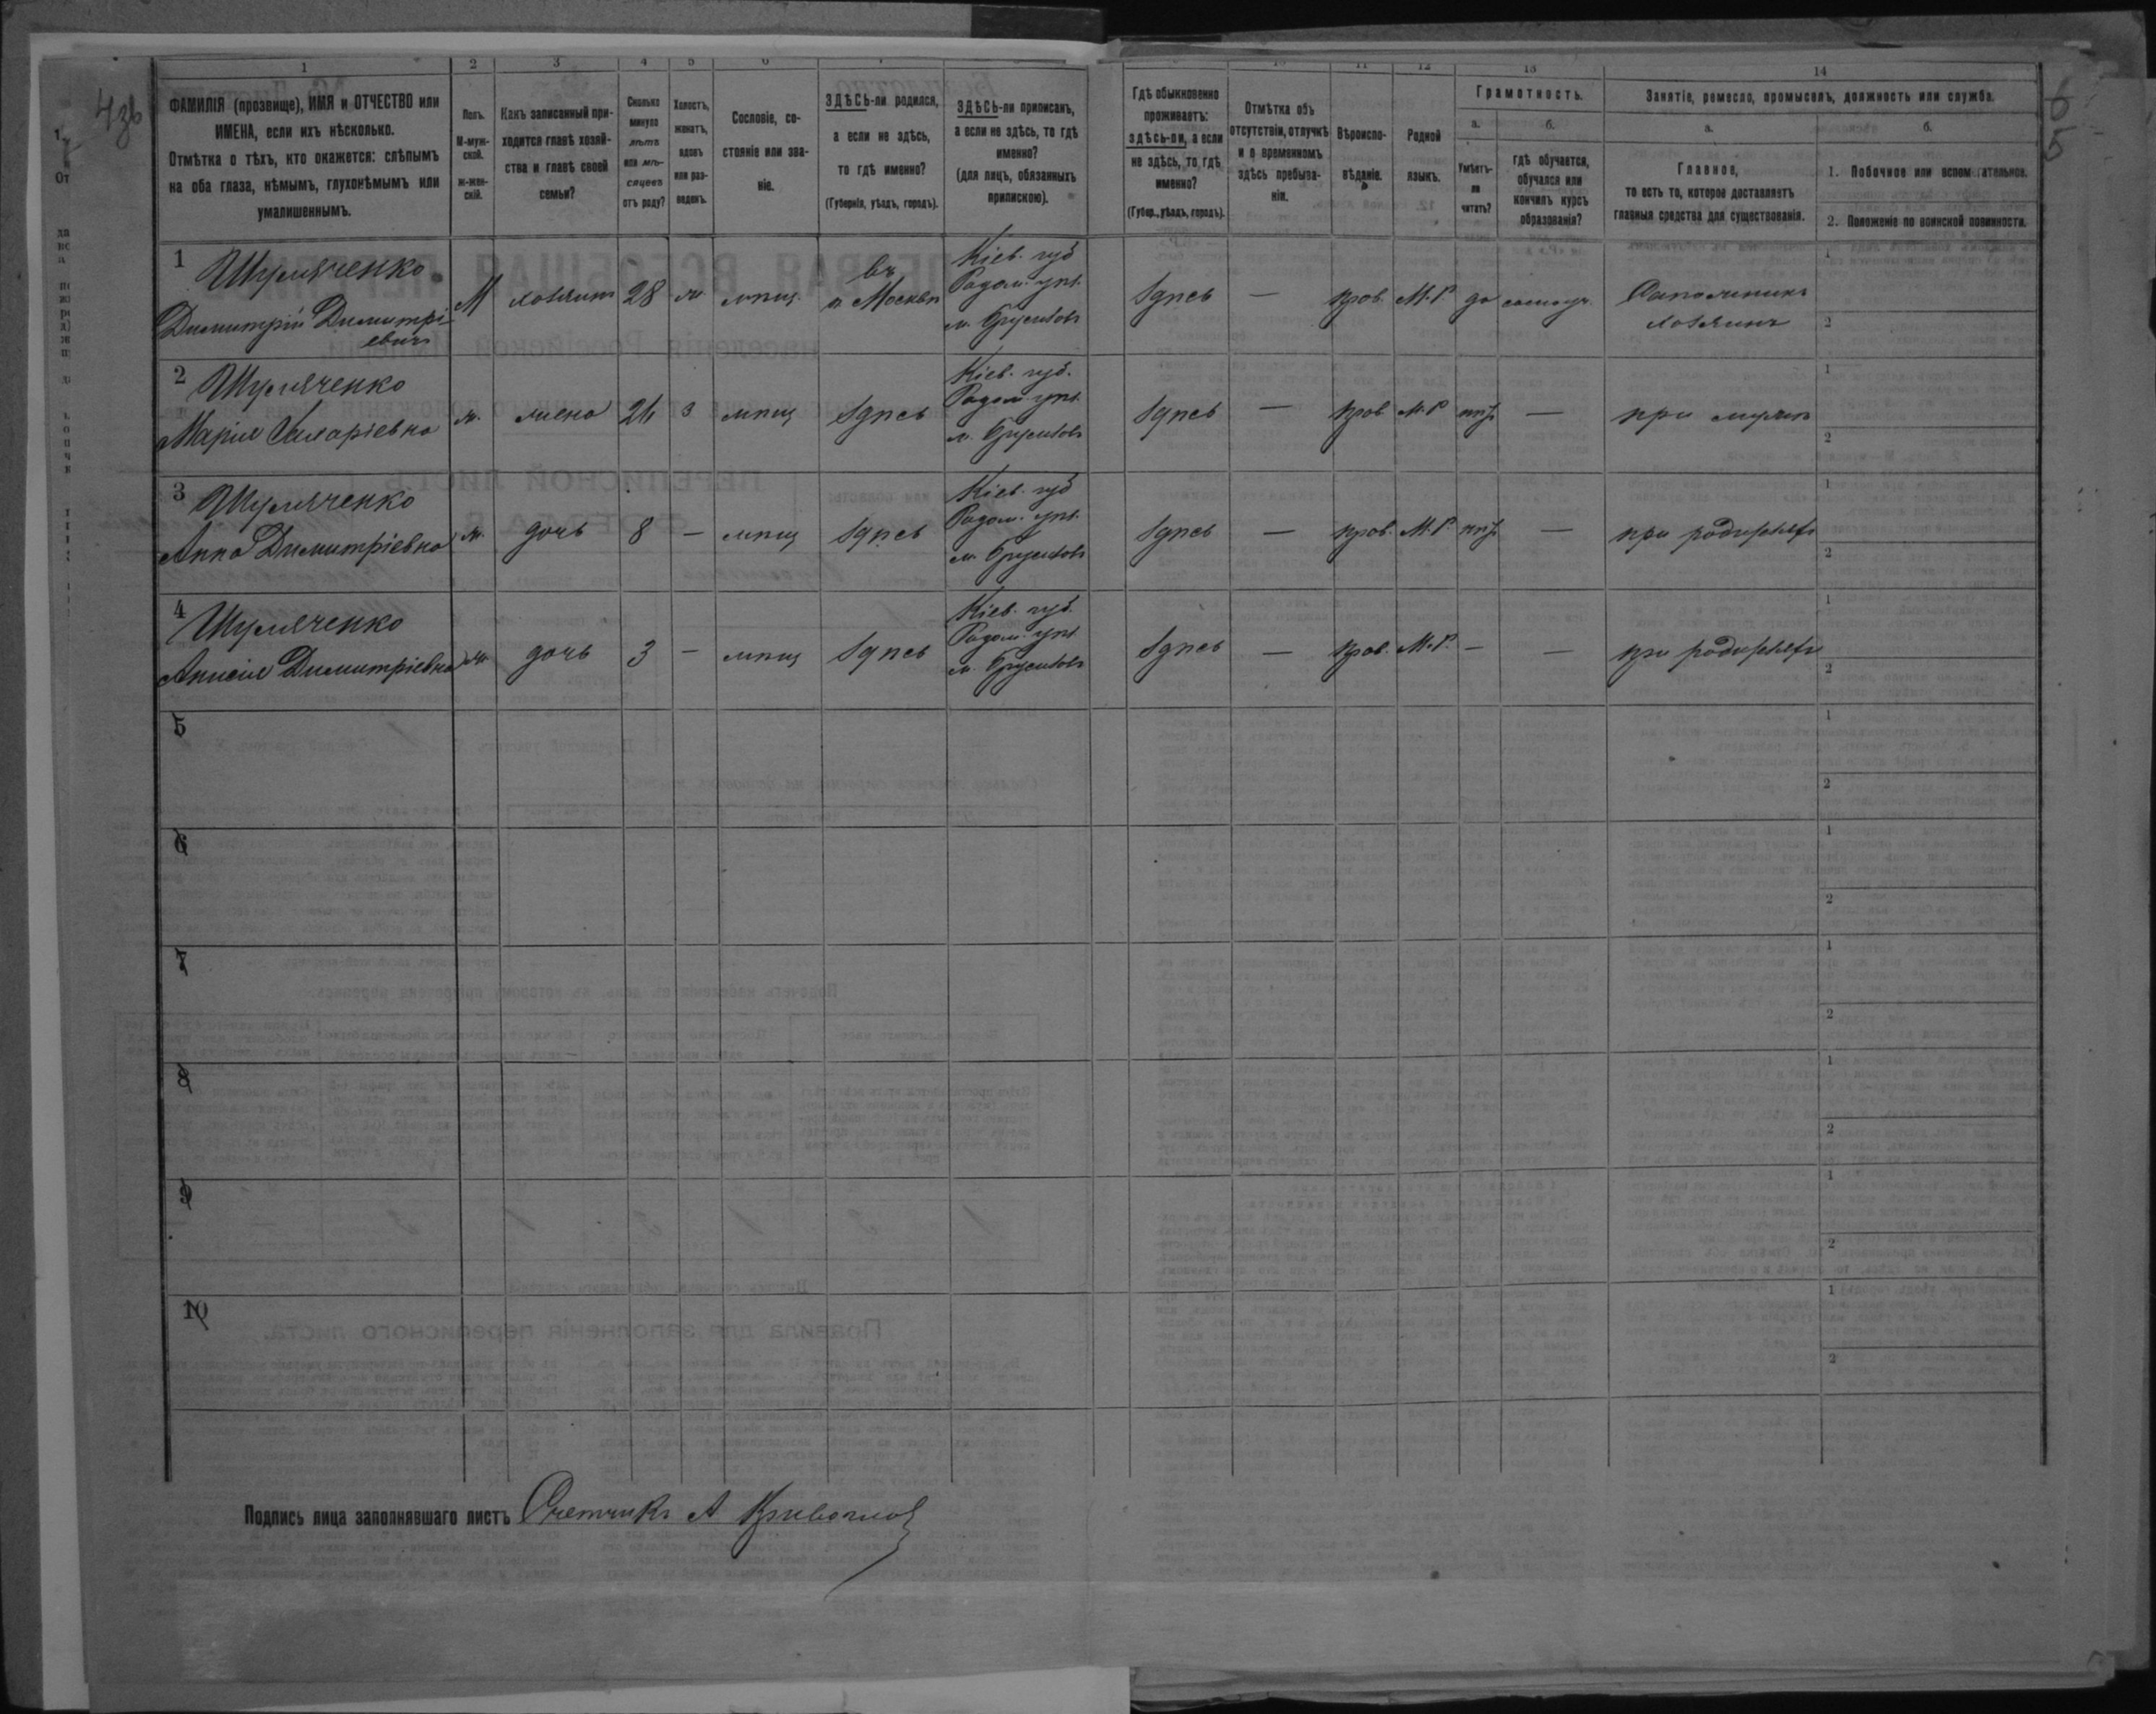 1 2 3 4 5 6 10 11 12 13 14
ФАМИЛІЯ (прозвище), ИМЯ и ОТЧЕСТВО или
ИМЕНА, если ихъ нѣсколько.
Отмѣтка о тѣхъ, кто окажется: слѣпымъ
на оба глаза, нѣмымъ, глухонѣмымъ или
умалишеннымъ.
Полъ.
М-муж-
ской.
ж-жен-
скій.
Какъ записанный при-
ходится главѣ хозяй-
ства и главѣ своей
семьи?
Сколько
минуло
лѣтъ
или мѣ-
сяцевъ
отъ роду?
Холостъ,
женатъ,
вдовъ
или раз-
веденъ.
Сословіе, со-
стояніе или зва-
ніе.
ЗДѢСЬ-ли родился,
а если не здѣсь,
то гдѣ именно?
(Губернія, уѣздъ, городъ).
ЗДѢСЬ-ли приписанъ,
а если не здѣсь, то гдѣ
именно?
(для лицъ, обязанныхъ
припискою).
Гдѣ обыкновенно
проживаетъ:
здѣсь-ли, а если
не здѣсь, то гдѣ
именно?
(Губер., уѣздъ, городъ).
Отмѣтка объ
отсутствіи, отлучкѣ
и о временномъ
здѣсь пребыва-
ніи.
Вѣроиспо-
вѣданіе.
Родной
языкъ.
Грамотность.
а.
Умѣетъ-
ли
читать?
б.
гдѣ обучается,
обучался или
кончилъ курсъ
образованія?
Занятіе, ремесло, промыселъ, должность или служба.
а.
Главное,
то есть то, которое доставляетъ
главныя средства для существованія.
б.
1. Побочное или вспомогательное.
2. Положеніе по воинской повинности.
1 Шумяченко
Димитрій Димитрі-
евичъ
М хозяинъ 28 ж мѣщ. въ
г. Москвѣ
Кіев. губ
Радом. уѣз.
м. Брусиловъ
Здѣсь — прав. М.Р. да самоуч. Сапожникъ
хозяинъ
1
2
2 Шумяченко
Марія Иларіевна
ж. жена 24 з мѣщ здѣсь
Кіев. губ.
Радом уѣз.
м. Брусиловъ
Здѣсь — прав М.Р нѣтъ — при мужѣ
1
2
3 Шумяченко
Анна Димитріевна
ж. дочь 8 — мѣщ здѣсь
Кіев. губ
Радом. уѣз.
м. Брусиловъ
Здѣсь — прав. М.Р. нѣтъ — при родителѣ
1
2
4 Шумяченко
Анисія Димитріевна
ж. дочь 3 — мѣщ здѣсь
Кіев. губ.
Радом. уѣз.
м. Брусиловъ
Здѣсь — прав. М.Р. — — при родителѣ
1
2
5
1
2
6
1
2
7
1
2
8
1
2
9
1
2
10
1
2
Подпись лица заполнявшаго листъ Счетчикъ А